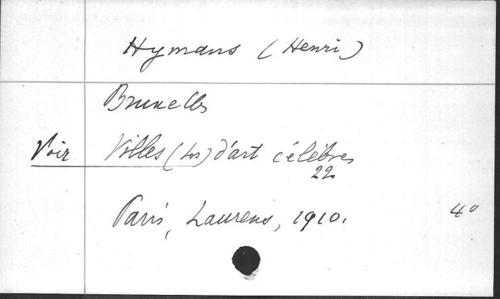 Hymans (Henri)
Bruxelles
Voir Villes (Les) d'art célèbres
22
Paris, Laurens, 1910. 4°